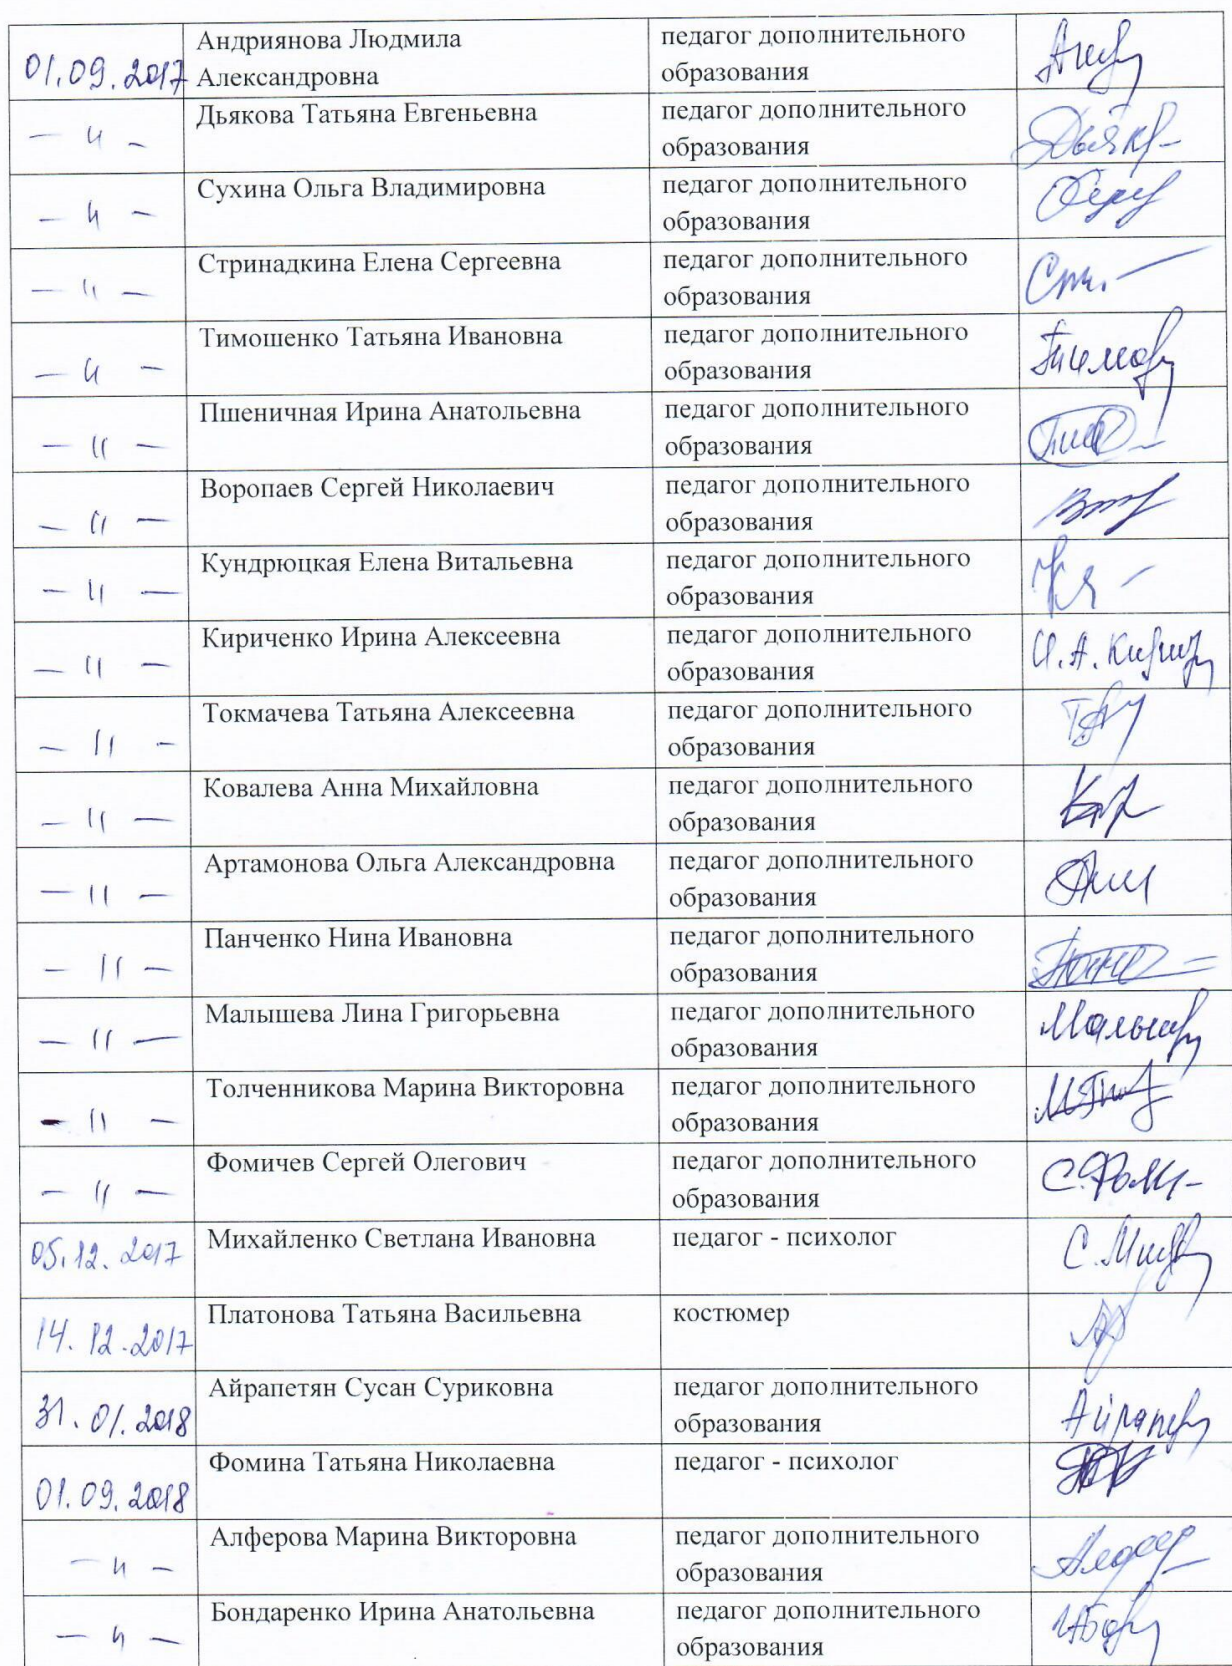 01.09.2017 Андриянова Людмила Александровна педагог дополнительного образования
— 〃 — Дьякова Татьяна Евгеньевна педагог дополнительного образования
— 〃 — Сухина Ольга Владимировна педагог дополнительного образования
— 〃 — Стринадкина Елена Сергеевна педагог дополнительного образования
— 〃 — Тимошенко Татьяна Ивановна педагог дополнительного образования
— 〃 — Пшеничная Ирина Анатольевна педагог дополнительного образования
— 〃 — Воропаев Сергей Николаевич педагог дополнительного образования
— 〃 — Кундрюцкая Елена Витальевна педагог дополнительного образования
— 〃 — Кириченко Ирина Алексеевна педагог дополнительного образования
— 〃 — Токмачева Татьяна Алексеевна педагог дополнительного образования
— 〃 — Ковалева Анна Михайловна педагог дополнительного образования
— 〃 — Артамонова Ольга Александровна педагог дополнительного образования
— 〃 — Панченко Нина Ивановна педагог дополнительного образования
— 〃 — Малышева Лина Григорьевна педагог дополнительного образования
— 〃 — Толченникова Марина Викторовна педагог дополнительного образования
— 〃 — Фомичев Сергей Олегович педагог дополнительного образования
05.12.2017 Михайленко Светлана Ивановна педагог - психолог
14.12.2017 Платонова Татьяна Васильевна костюмер
31.01.2018 Айрапетян Сусан Суриковна педагог дополнительного образования
01.09.2018 Фомина Татьяна Николаевна педагог - психолог
— 〃 — Алферова Марина Викторовна педагог дополнительного образования
— 〃 — Бондаренко Ирина Анатольевна педагог дополнительного образования